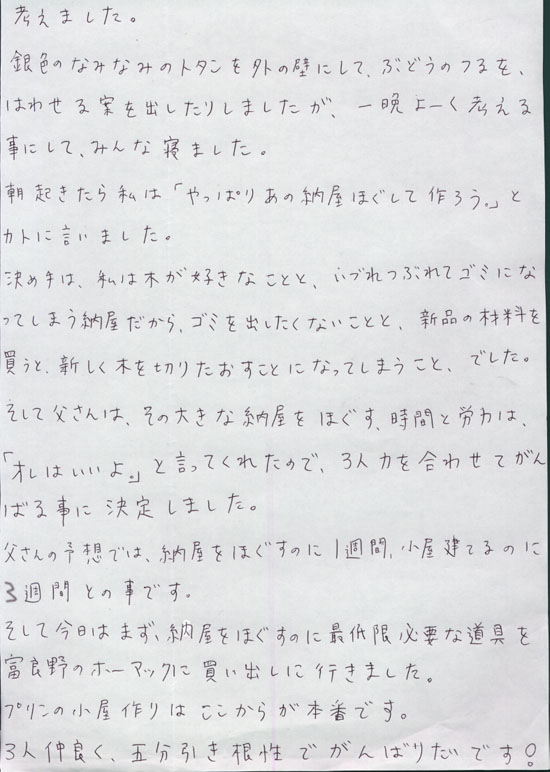 考えました。
銀色のなみなみのトタンを外の壁にして、ぶどうのつるを、
はわせる案を出したりしましたが、一晩よーく考える
事にして、みんな寝ました。
朝起きたら私は「やっぱりあの納屋ほぐして作ろう。」と
カトに言いました。
決め手は、私は木が好きなことと、いづれつぶれてゴミにな
ってしまう納屋だから、ゴミを出したくないことと、新品の材料を
買うと、新しく木を切りたおすことになってしまうこと、でした。
そして父さんは、その大きな納屋をほぐす、時間と労力は、
「オレはいいよ。」と言ってくれたので、3人力を合わせてがん
ばる事に決定しました。
父さんの予想では、納屋をほぐすのに1週間、小屋建てるのに
3週間との事です。
そして今日はまず、納屋をほぐすのに最低限必要な道具を
富良野のホーマックに買い出しに行きました。
プリンの小屋作りはここからが本番です。
3人仲良く、五分引き根性でがんばりたいです!